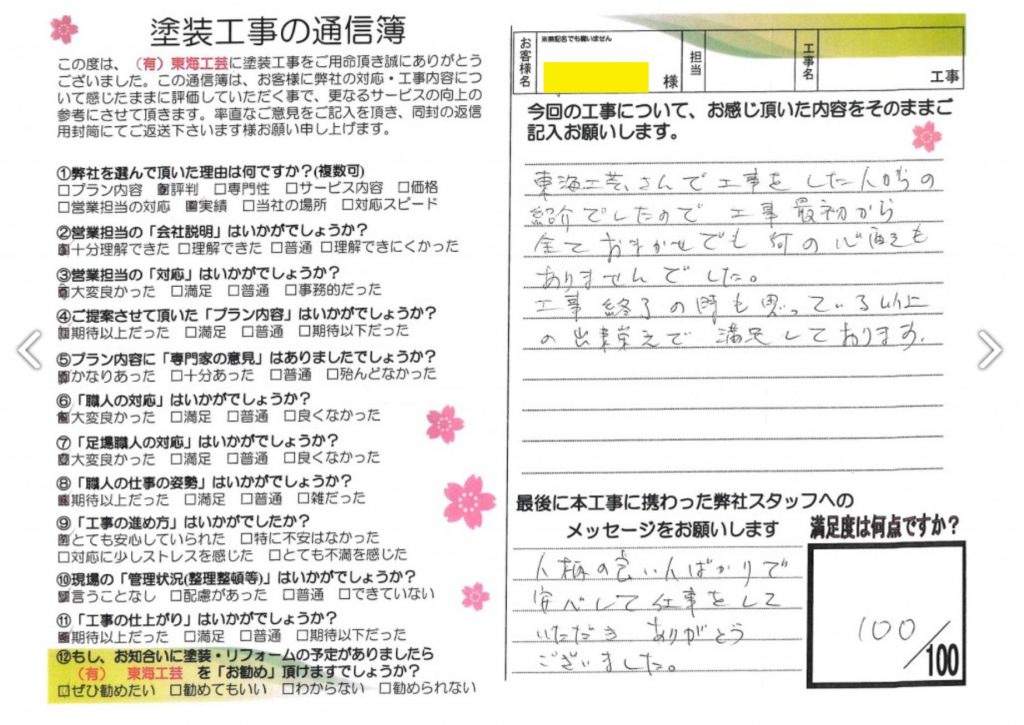 塗装工事の通信簿
この度は、（有）東海工芸に塗装工事をご用命頂き誠にありがとう
ございました。この通信簿は、お客様に弊社の対応・工事内容につ
いて感じたままに評価していただく事で、更なるサービスの向上の
参考にさせて頂きます。率直なご意見をご記入を頂き、同封の返信
用封筒にてご返送下さいます様お願い申し上げます。
①弊社を選んで頂いた理由は何ですか？(複数可)
□プラン内容 ■評判 □専門性 □サービス内容 □価格
□営業担当の対応 ■実績 □当社の場所 □対応スピード
②営業担当の「会社説明」はいかがでしょうか？
■十分理解できた □理解できた □普通 □理解できにくかった
③営業担当の「対応」はいかがでしょうか？
■大変良かった □満足 □普通 □事務的だった
④ご提案させて頂いた「プラン内容」はいかがでしょうか？
■期待以上だった □満足 □普通 □期待以下だった
⑤プラン内容に「専門家の意見」はありましたでしょうか？
■かなりあった □十分あった □普通 □殆んどなかった
⑥「職人の対応」はいかがでしょうか？
■大変良かった □満足 □普通 □良くなかった
⑦「足場職人の対応」はいかがでしょうか？
■大変良かった □満足 □普通 □良くなかった
⑧「職人の仕事の姿勢」はいかがでしょうか？
■期待以上だった □満足 □普通 □雑だった
⑨「工事の進め方」はいかがでしたか？
■とても安心していられた □特に不安はなかった
□対応に少しストレスを感じた □とても不満を感じた
⑩現場の「管理状況(整理整頓等)」はいかがでしょうか？
■言うことなし □配慮があった □普通 □できていない
⑪「工事の仕上がり」はいかがでしょうか？
■期待以上だった □満足 □普通 □期待以下だった
⑫もし、お知合いに塗装・リフォームの予定がありましたら
（有） 東海工芸 を「お勧め」頂けますでしょうか？
□ぜひ勧めたい □勧めてもいい □わからない □勧められない
お客様名 ※無記名でも構いません 様 担当 工事名 工事
今回の工事について、お感じ頂いた内容をそのままご
記入お願いします。
東海工芸さんで工事をした人からの
紹介でしたので 工事最初から
全ておまかせでも何の心配も
ありませんでした。
工事終了の時も思っている以上
の出来栄えで 満足しております。
最後に本工事に携わった弊社スタッフへの
メッセージをお願いします
人柄の良い人ばかりで
安心して仕事をして
いただき ありがとう
ございました。
満足度は何点ですか？
100/100